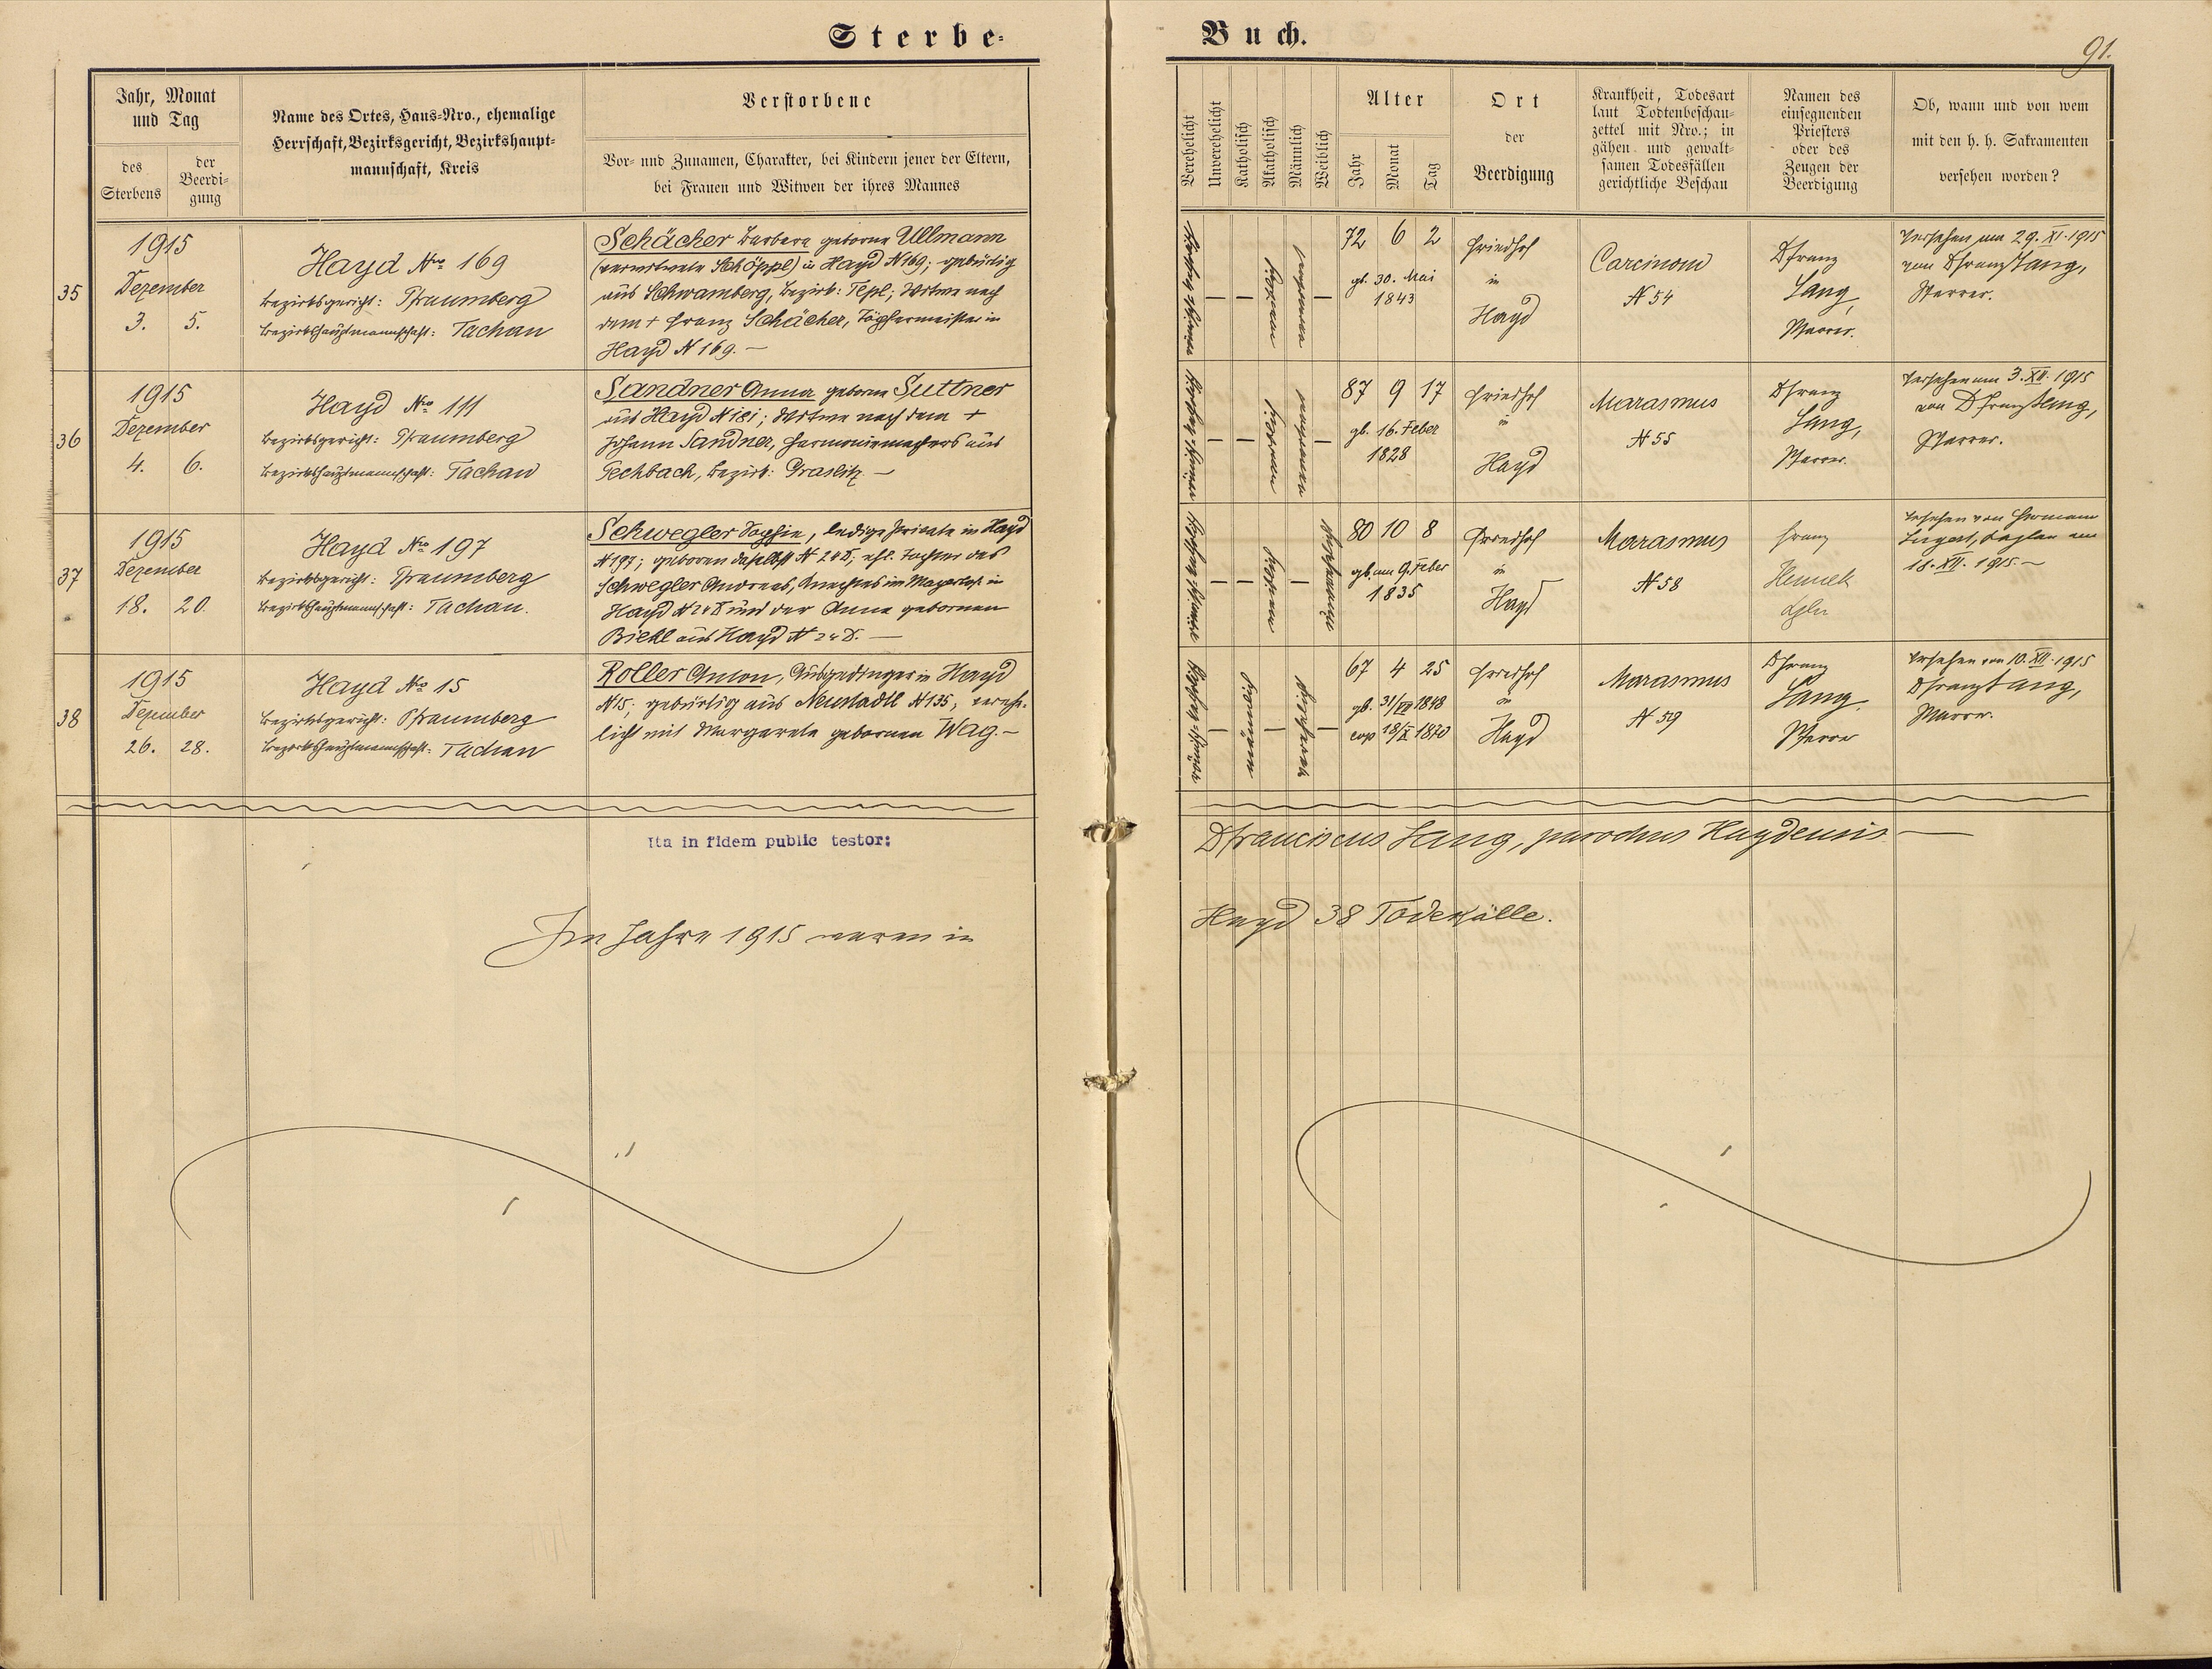 Sterbe-
Buch.
91.
Jahr, Monat
und Tag
des
Sterbens
der
Beerdi-
gung
Name des Ortes, Haus-Nro., ehemalige
Herrschaft, Bezirksgericht, Bezirkshaupt-
mannschaft, Kreis
Verstorbene
Vor- und Zunamen, Charakter, bei Kindern jener der Eltern,
bei Frauen und Witwen der ihres Mannes
Verehelicht
Unverehelicht
Katholisch
Akatholisch
Männlich
Weiblich
Alter
Jahr
Monat
Tag
Ort
der
Beerdigung
Krankheit, Todesart
laut Todtenbeschau-
zettel mit Nro.; in
gähen und gewalt-
samen Todesfällen
gerichtliche Beschau
Namen des
einsegnenden
Priesters
oder des
Zeugen der
Beerdigung
Ob, wann und von wem
mit den h. h. Sakramenten
versehen worden?
35
1915
Dezember
3. 5.
Hayd Nro 169
Bezirksgericht: Pfraumberg
Bezirkshauptmannschaft: Tachau
Schächer Barbara geborne Ullmann
(verwitwete Schöppl) in Hayd N 169; gebürtig
aus Schwamberg, Bezirk: Tepl; Witwe nach
dem + Franz Schächer, Töpfermeister in
Hayd N 169. —
72 6 2
gb. 30. Mai
1843
Friedhof
in
Hayd
Carcinom
N 54
P Franz
Lang,
Pfarrer.
Versehen am 29. XI. 1915
von P Franz Lang,
Pfarrer.
36
1915
Dezember
4. 6.
Hayd Nro 111
Bezirksgericht: Pfraumberg
Bezirkshauptmannschaft: Tachau
Sandner Anna geborne Suttner
aus Hayd N 181; Witwe nach dem +
Johann Sandner, Harmoniemachers aus
Pechbach, Bezirk: Graslitz. —
87 9 17
gb. 16. Feber
1828
Friedhof
in
Hayd
Marasmus
N 55
P Franz
Lang,
Pfarrer.
Versehen am 3. XII. 1915
von P Franz Lang,
Pfarrer.
37
1915
Dezember
18. 20.
Hayd Nro 197
Bezirksgericht: Pfraumberg
Bezirkshauptmannschaft: Tachau.
Schwegler Sophie, ledige Private in Hayd
N 197; geboren daselbst N 248, ehl. Tochter des
Schwegler Andreas, Knechtes im Mayerhof in
Hayd N 248 und der Anna gebornen
Biehl aus Hayd N 248. —
80 10 8
gb. am 9. Feber
1835
Friedhof
in
Hayd
Marasmus
N 58
Franz
Kpln
Versehen von Hermann
Kaplan am
18. XII. 1915. —
38
1915
Dezember
26. 28.
Hayd Nro 15
Bezirksgericht: Pfraumberg
Bezirkshauptmannschaft: Tachau
Roller Anton, Ausgedinger in Hayd
N 15; gebürtig aus Neustadtl N 135, vereh-
licht mit Margareta gebornen Wag. —
67 4 25
gb. 31/VII 1848
cop 18/X 1870
Friedhof
in
Hayd
Marasmus
N 59
P Franz
Lang,
Pfarrer
Versehen am 10. XII. 1915
P Franz Lang,
Pfarrer.
Ita in fidem public testor:
P Franciscus Lang, parochus Haydensis —
Im Jahre 1915 waren in
Hayd 38 Todesfälle.